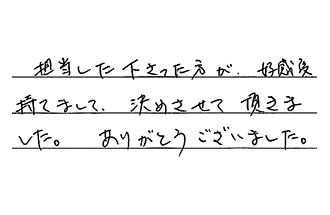 担当した下さった方が、好感度
持てまして、決めさせて頂きま
した。ありがとうございました。